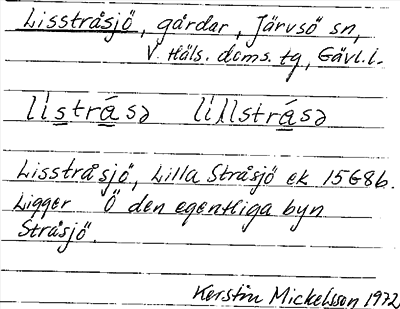 Lisstråsjö, gårdar, Järvsö sn,
V. Häls. doms. tg, Gävl. l.
listrása lillstrása
Lisstråsjö, Lilla Stråsjö ek 1568b.
Ligger Ö den egentliga byn
Stråsjö.
Kerstin Mickelsson 1972